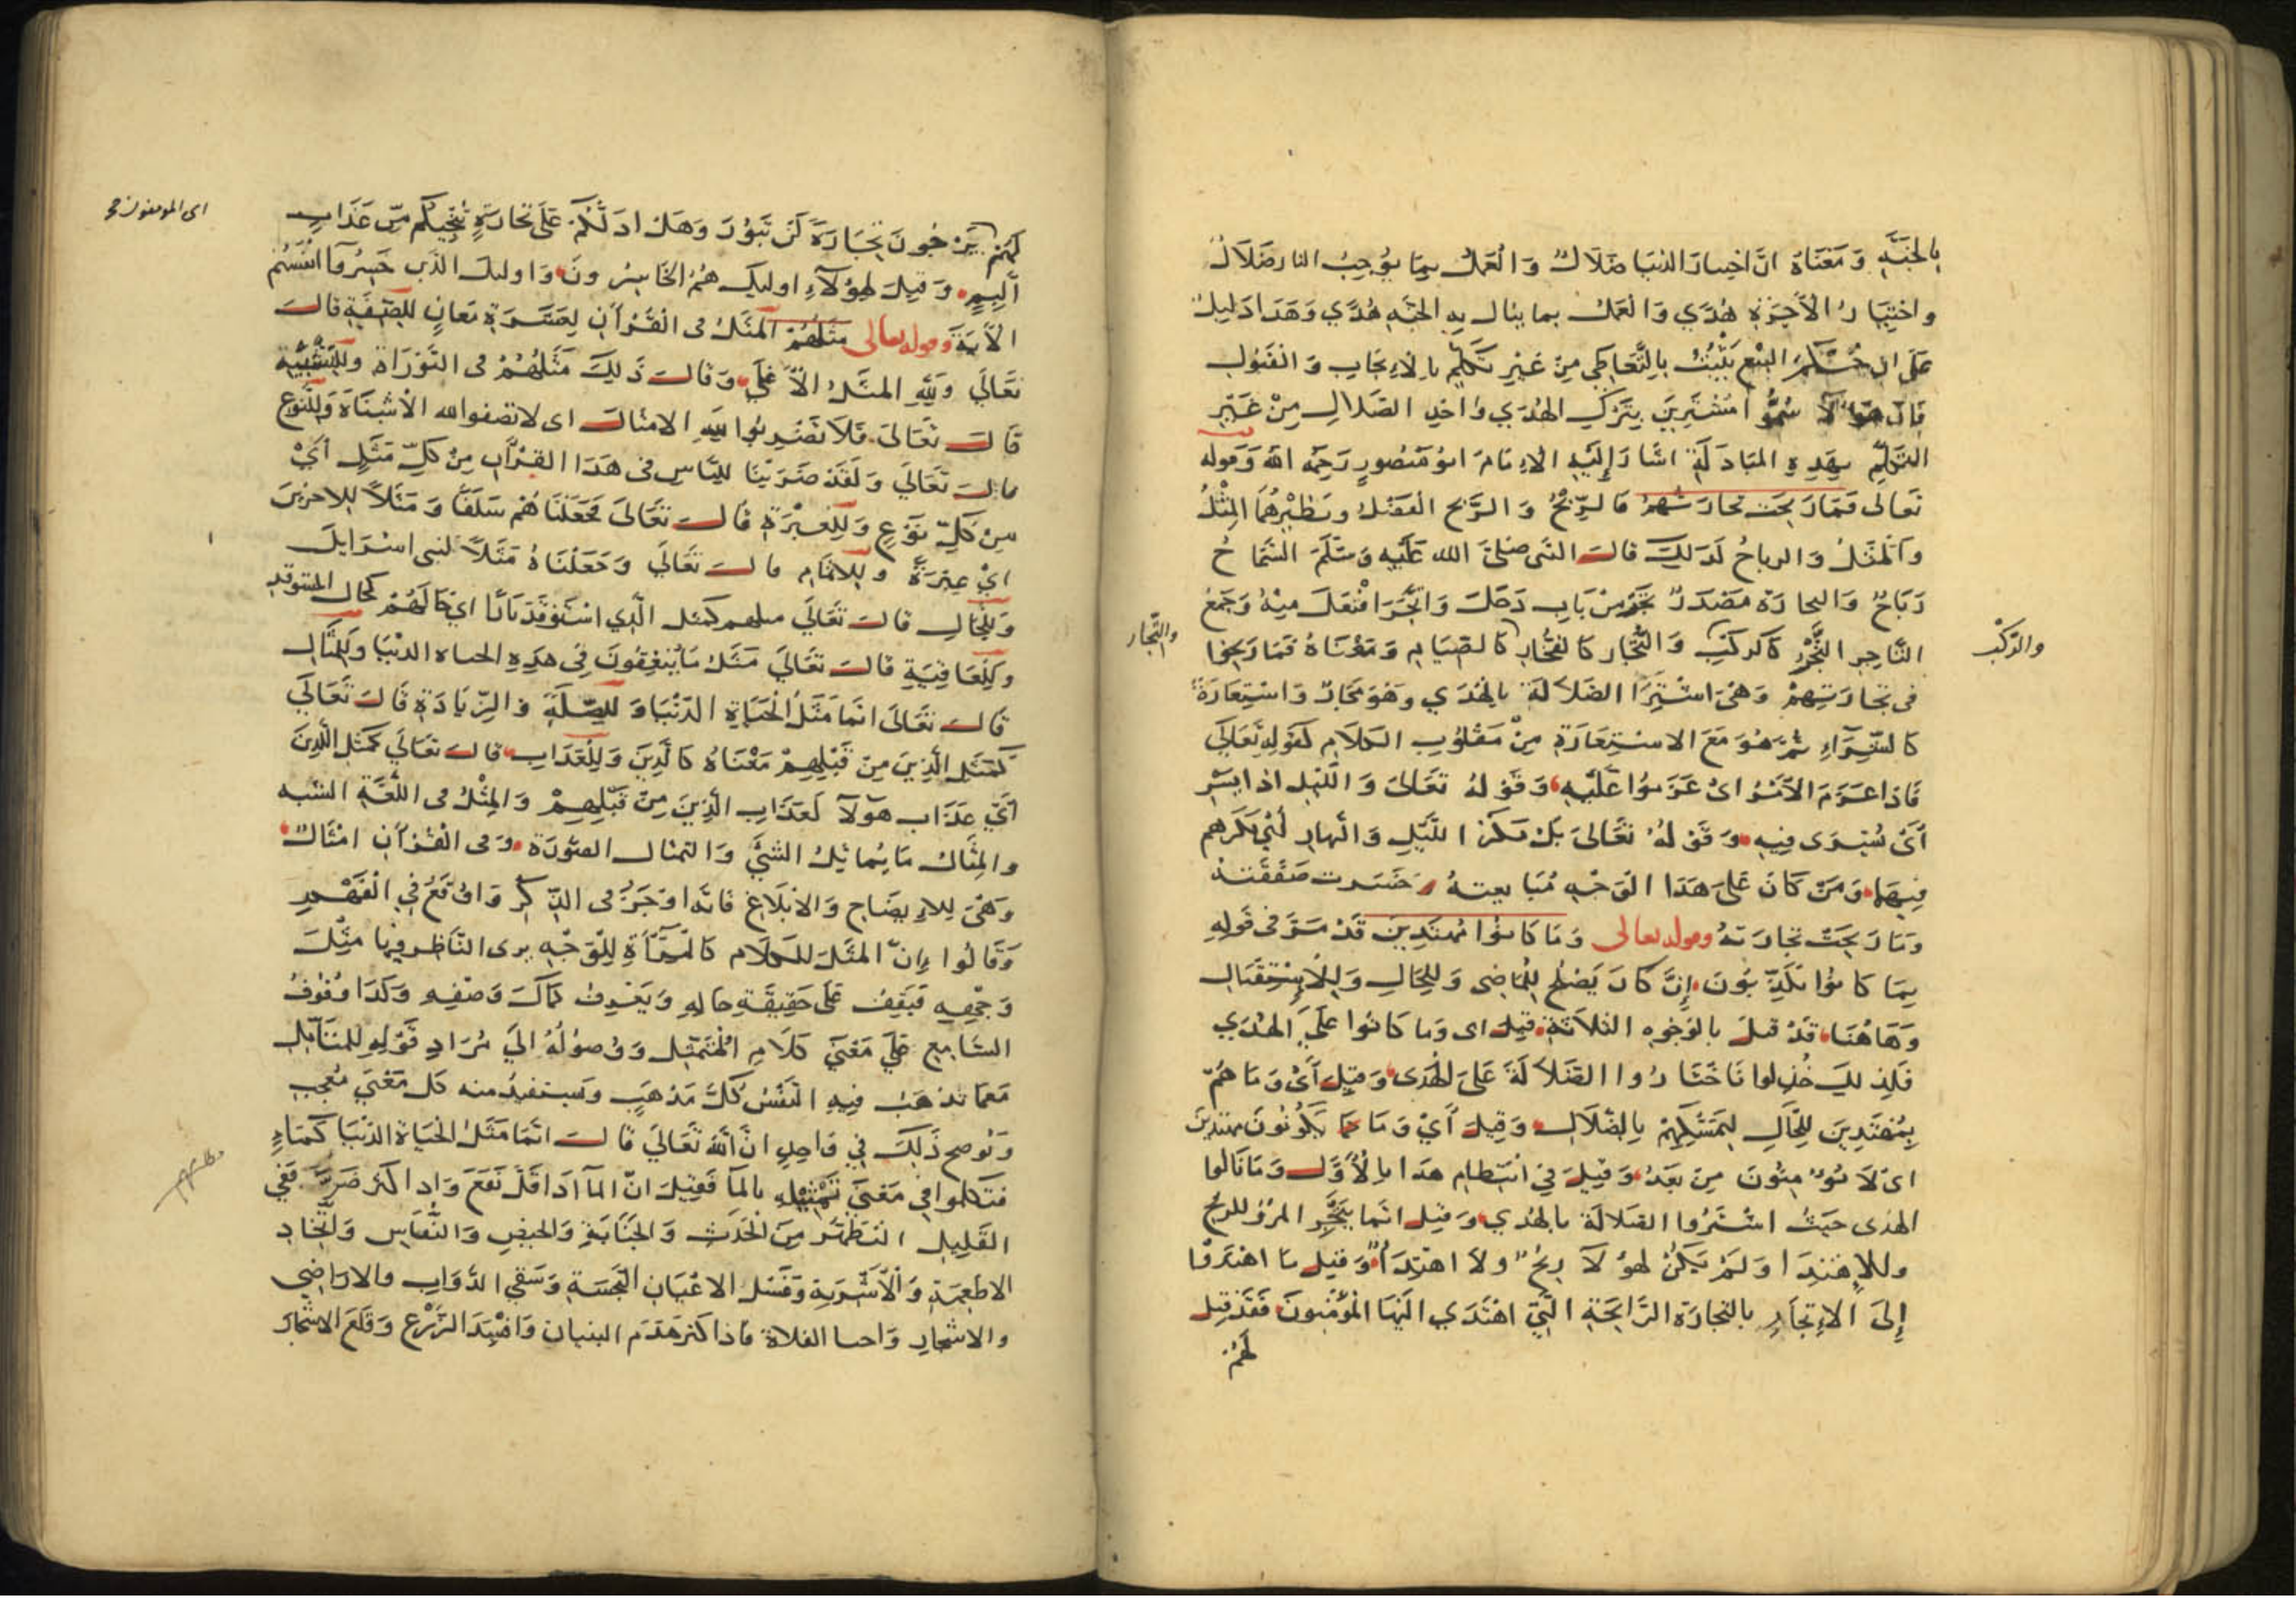 بالجنة ومعناه ان اختيار الدنيا ضلال والعمل بما يوجب النار ضلال
واختيار الآخرة هدى والعمل بما ينال به الجنة هدى وهذا دليل
على ان البيع يثبت بالتعاطي من غير تكلم بالايجاب والقبول
فان هؤلاء سموا مشترين بترك الهدى واخذ الضلال من غير
التكلم بهذه المبادلة اشار اليه الامام ابو منصور رحمه الله وقوله
تعالى فما ربحت تجارتهم فالربح والربح الفضل ونظيرهما المثل
والمثل والرباح كذلك قال النبي صلى الله عليه وسلم السماح
رباح والتجارة مصدر تجر من باب دخل واتجر افتعل منه وجمع
التاجر التجر كالركب والتجار كالفجار كالصيام ومعناه فما ربحوا
والركب
والتجار
في تجارتهم وهي اشترا الضلالة بالهدى وهو مجاز واستعارة
كالشراء ثم هو مع الاستعارة من مقلوب الكلام كقوله تعالى
فاذا عزم الأمر اى عزموا عليه وقوله تعالى والليل اذا يسر
أى يسرى فيه وقوله تعالى بل مكر الليل والنهار أي مكرهم
فيهما ومن كان على هذا الوجه مبايعته خسرت صفقته
وما ربحت تجارته وقوله تعالى وما كانوا مهتدين قد مر في قوله
بما كانوا يكذبون إن كان يصلح للماضي وللحال وللاستقبال
وهاهنا قد قيل بالوجوه الثلاثة قيل اى وما كانوا على الهدى
فلذلك خذلوا فاختاروا الضلالة على الهدى وقيل أى وما هم
بمهتدين للحال لتمسكهم بالضلال وقيل أي وما يكونون مهتدين
اى لا يؤمنون من بعد وقيل في انتظام هذا بالأول وما نالوا
الهدى حيث اشتروا الضلالة بالهدى وقيل انما يتجر المرؤ للربح
وللاهتدا ولم يكن لهؤلا ربح ولا اهتداء وقيل ما اهتدوا
إلى الإتجار بالتجارة الرابحة التي اهتدى اليها المؤمنون فقد قيل
لهم
لهم يرجون تجارة لن تبور وهل ادلكم على تجارة تنجيكم من عذاب
اى المومنون
أليم وقيل لهؤلآء اوليك هم الخاسرون واوليك الذين خسروا انفسهم
الآية وقوله تعالى مثلهم المثل فى القرآن لعشرة معان للصفة قال
تعالى ولله المثل الأعلى وقال ذلك مثلهم فى التوراة وللتشبيه
قال تعالى فلا تضربوا لله الامثال اى لا تصفوا لله الأشباه وللنوع
قال تعالى ولقد ضربنا للناس فى هذا القرآن من كل مثل أي
من كل نوع وللعبرة قال تعالى فجعلناهم سلفا ومثلا للاخرين
اي عبرة وللامام قال تعالى وجعلناه مثلا لبنى اسرايل
وللحال قال تعالى مثلهم كمثل الذي استوقد نارا اى حالهم كحال المستوقد
وللعاقبة قال تعالى مثل ما ينفقون في هذه الحياه الدنيا وللمثال
قال تعالى انما مثل الحياة الدنيا وللصلة والزيادة قال تعالى
كمثل الذين من قبلهم معناه كالذين وللعذاب قال تعالى كمثل الذين
أي عذاب هؤلآ كعذاب الذين من قبلهم والمثل فى اللغة الشبه
والمثال ما يماثل الشئ والتمثال الصورة وفى القرآن امثال
وهى للايضاح والابلاغ فانه اوجز فى الذكر واوقع في الفهم
وقالوا إن المثل للكلام كالمرآة للوجه يرى الناظر فيها مثل
وجهه فيقف على حقيقة حاله ويعرف كمال وصفه وكذا وقوف
السامع على معنى كلام المتمثل ووصوله الى مراد قوله للمتأمل
مما تذهب فيه النفس كل مذهب وتستفيد منه كل معنى معجب
ونوضح ذلك في واحد ان الله تعالى قال انما مثل الحياة الدنيا كماء
فتكلموا فى معنى تمثيله بالمآ فقيل ان المآ اذا قل نفع واذا كثر ضر ففي
القليل التطهر من الحدث والجنابة والحيض والنفاس واتخاذ
الاطعمة والأشربة وغسل الاعيان النجسة وسقى الدواب والاراضي
والاشجار واحيا الفلاة فاذا كثر هدم البنيان وافسد الزرع وقلع الاشجار